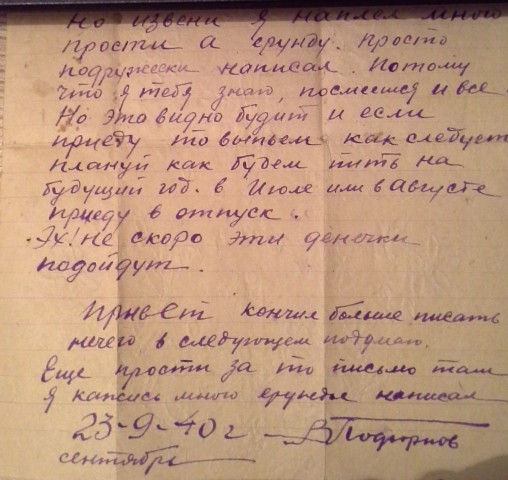 Но извени я наплел много
прости а ерунду. Просто
подружески написал. Потому
что я тебя знаю, посмеемся и все.
Но это видно будит и если
приеду то выпьем как следует
плануй как будем пить на
будущий год. в Июле или в Августе
приеду в отпуск.
Эх! Не скоро эти денечки
подойдут.
Привет кончил больше писать
нечего, в следующем подумаю.
Еще прости за то письмо там
я кажись много ерунды написал
23-9-40 г
сентября